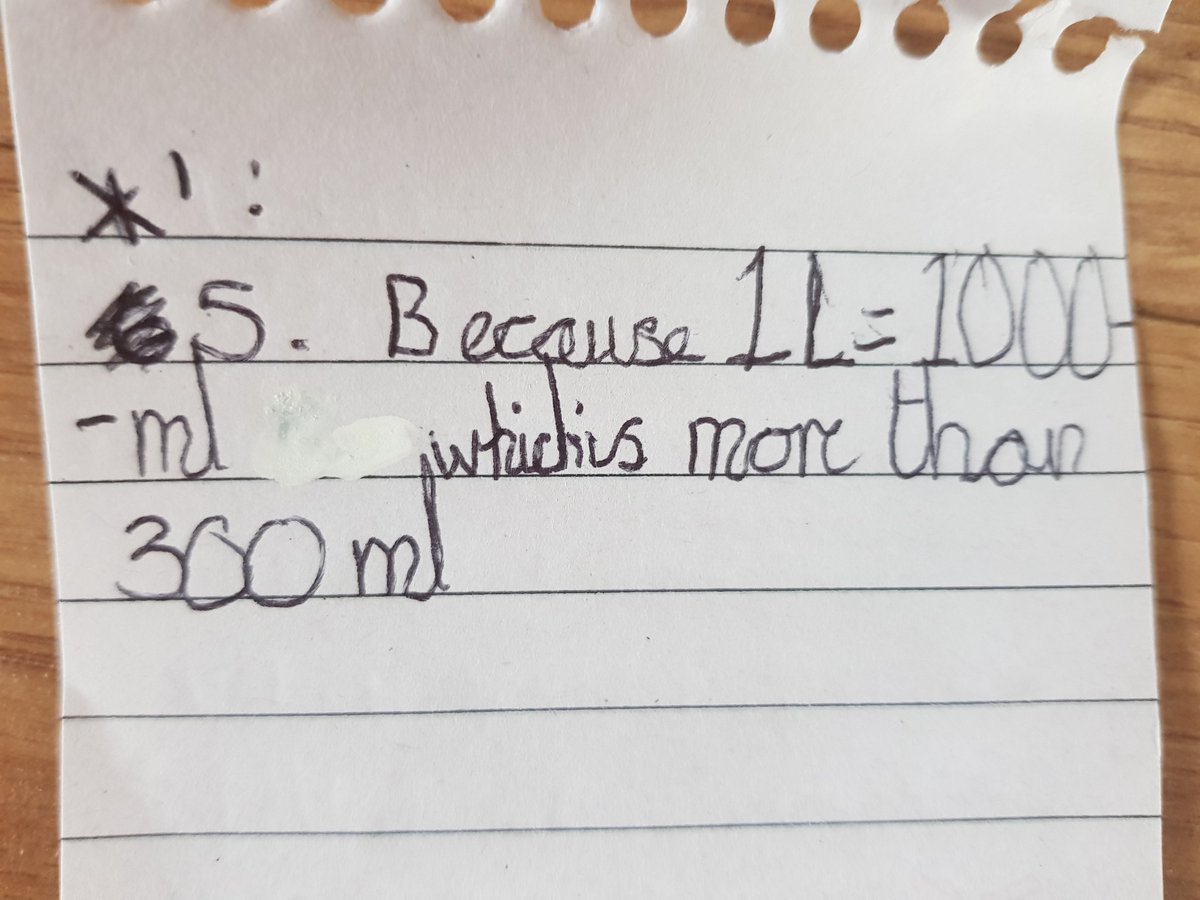 *':
5. Because 1L = 1000-
-ml ,which is more than
300 ml